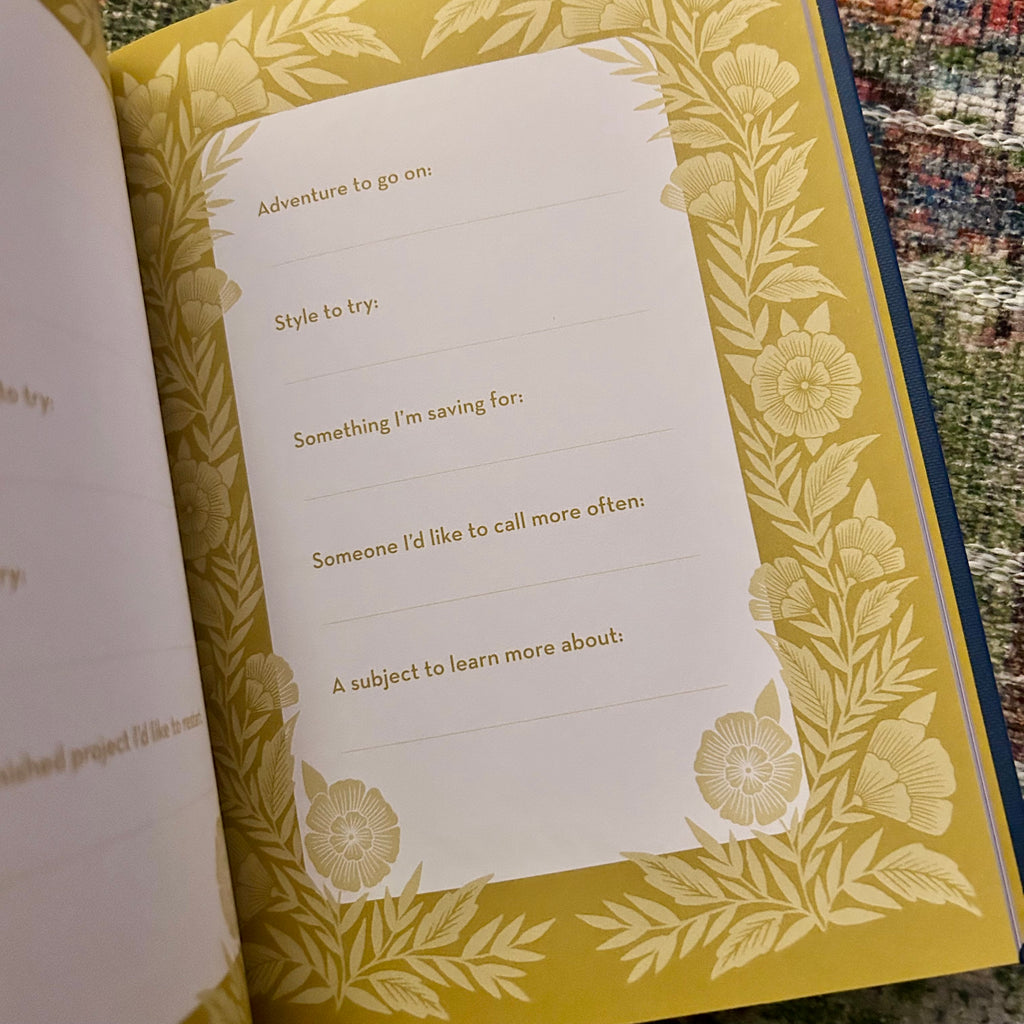 to try:
project I'd like to
Adventure to go on:
Style to try:
Something I'm saving for:
Someone I'd like to call more often:
A subject to learn more about: